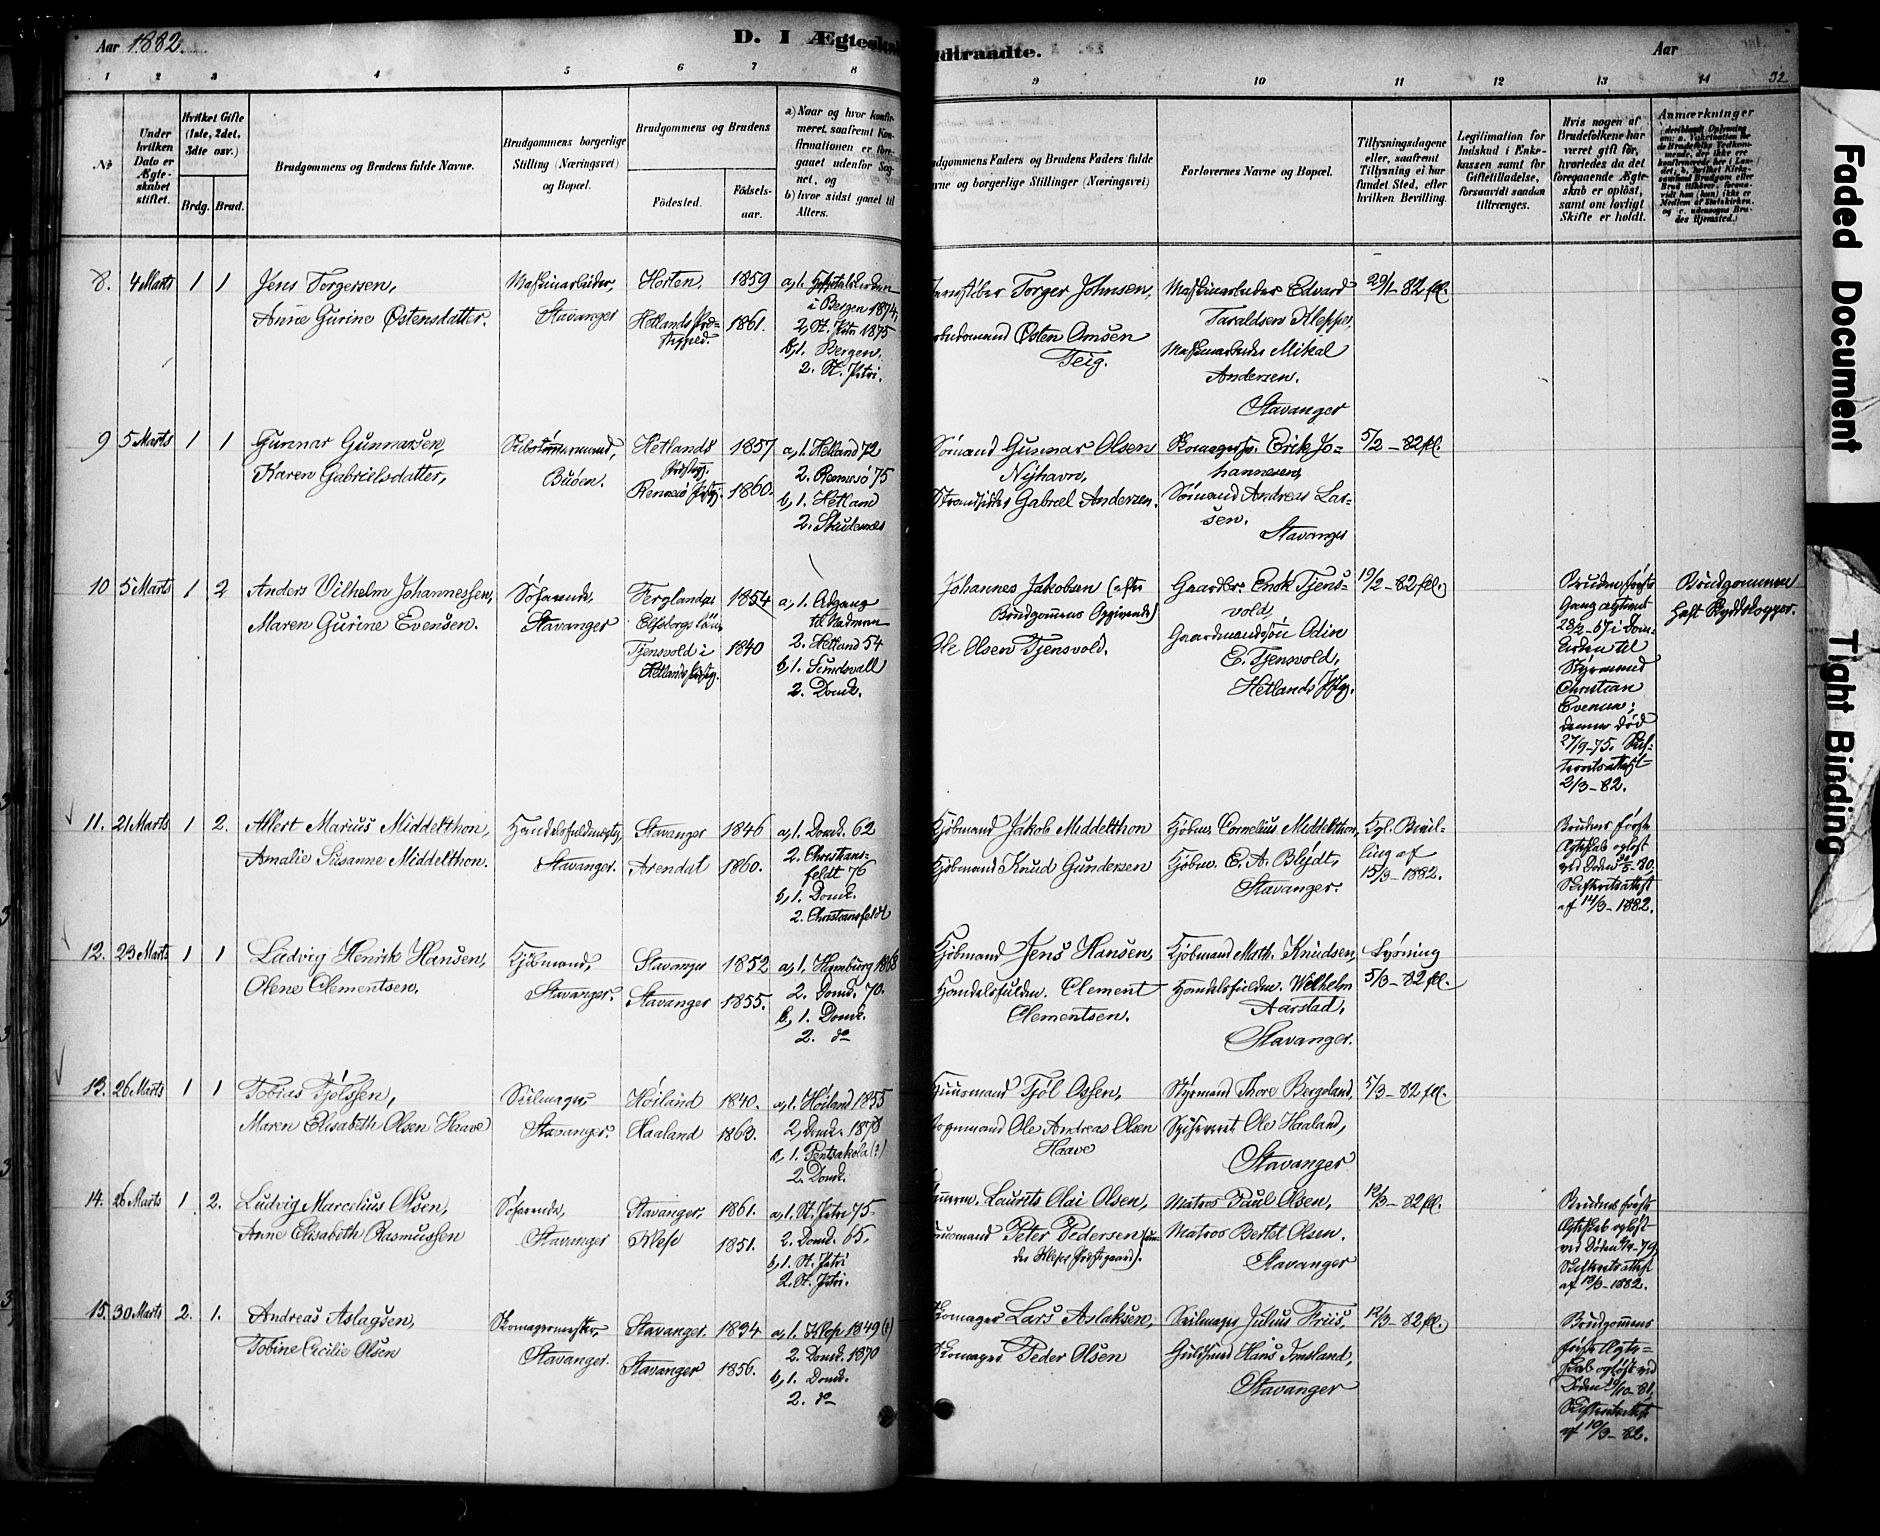 Aar 1882.
D. I Ægteskab
Indtraadte.
Aar
1 2 3 4 5 6 7 8 9 10 11 12 13 14
32
№
Under hvilken Dato er Ægteskabet stiftet.
Hvilket Gifte (1ste, 2det, 3die osv.)
Brdg. Brud.
Brudgommens og Brudens fulde Navne.
Brudgommens borgerlige Stilling (Næringsvei) og Bopæl.
Brudgommens og Brudens
Fødested. Fødsels-aar.
a) Naar og hvor konfirmeret, saafremt Konfirmationen er foregaaet udenfor Sognet, og
b) hvor sidst gaaet til Alters.
dgommens Faders og Brudens Faders fulde
vne og borgerlige Stillinger (Næringsvei)
Forlovernes Navne og Bopæl.
Tillysningsdagene eller, saafremt Tillysning ei har fundet Sted, efter hvilken Bevilling.
Legitimation for Indskud i Enkekassen samt for Giftetilladelse, forsaavidt saadan tiltrænges.
Hvis nogen af Brudefolkene har været gift før, hvorledes da det foregaaende Ægteskab er opløst, samt om lovligt Skifte er holdt.
Anmærkninger
8. 4 Marts 1 1
Jens Torgersen,
Anne Gurine Østensdatter.
Maskinarbeider,
Stavanger
Horten, 1859
Hetlands
1861.
i Bergen 1874,
2, St. Petri 1875
b, 1. Bergen.
2. St. Petri.
Torger Johnsen,
Østen Omsen
Teig.
Maskinarbeider Edvard
Taraldsen Kleppe,
Maskinarbeider Mikal
Andersen.
Stavanger
29/1-82 fl.
9 5 Marts 1 1
Gunnar Gunnarsen,
Karen Gabrielsdatter,
Buøen.
Hetlands 1857
Rennesø 1860.
a, 1. Hetland 72
2. Rennesø 75
b, 1. Hetland
2. Skudenes
Sømand Gunnar Olsen
Nyhavn,
Strandsidder Gabriel Andersen.
Erik Jo-
hannesen,
Sømand Andreas Lar-
sen.
Stavanger
5/2-82 fl.
10 5 Marts 1 2
Anders Vilhelm Johannessen,
Maren Gurine Evensen.
Søfarende,
Stavanger
1854
Elfsborgs län,
Tjensvold i 1840
Hetlands
a, 1. Adgang
til Nadveren
2. Hetland 54
b, 1. Sundsvall
2. Domk.
Johannes Jakobsen (efter
Brudgommens Opgivende)
Ole Olsen Tjensvold.
Gaardbr. Enok Tjens-
vold,
Gaardmandssøn Odin
E. Tjensvold,
Hetlands
19/2-82 fl.
Bruden første
Gang
28/2-67 i Dom-
kirken til
Styrmand
Christian
Evensen;
denne død
27/9-75. Skif-
teretsattest
2/3-82.
Brudgommen
11. 21 Marts 1 2.
Allert Marius Middelthon,
Amalie Susanne Middelthon.
Handelsfuldmægtig,
Stavanger.
Stavanger 1846
Arendal 1860.
a, 1. Domk. 62
2. Christians-
feldt 76
b, 1. Domk.
2. Christiansfeldt
Kjøbmand Jakob Middelthon
Kjøbmand Knud Gundersen
Kjøbm. Cornelius Middelthon,
Kjøbm. E. A. Blydt,
Stavanger.
Kgl. Bevil-
ling af
15/3-1882.
Brudens første
Ægteskab opløst
ved Døden
-80,
Skifteretsattest
af 14/3-1882.
12. 23 Marts 1 1
Ludvig Henrik Hansen,
Olene Clementsen.
Kjøbmand,
Stavanger.
Stavanger 1852
Stavanger 1855.
a, 1. Hamburg 1868
2. Domk. 70.
b, 1. Domk.
2. do
Kjøbmand Jens Hansen,
Handelsfuldm. Clement
Clementsen.
Kjøbmand Math. Knudsen,
Handelsfuldm. Wilhelm
Aarstad,
Stavanger.
Lysning
5/3-82 fl.
13. 26 Marts 1 1
Tobias Tjølssen,
Maren Elisabeth Olsen Haave
Seilmager,
Stavanger.
Høiland 1840.
Haaland 1863.
a, 1. Høiland 1855
2, Domk. 1878
b, 1. Pentsakola (?)
2. Domk.
Huusmand Tjøl Ossen,
Ole Andreas Olsen
Haave
Styrmand Thore Bergeland,
Ole Haaland,
Stavanger
5/3-82 fl.
14. 26 Marts 1 2.
Ludvig Marcelius Olsen,
Anne Elisabeth Rasmussen
Søfarende,
Stavanger
Stavanger, 1861.
Klep 1851.
a, 1. St. Petri 75.
2. Domk. 65.
b, 1. St. Petri
2. St. Petri.
Laurits Olai Olsen,
Peter Pedersen
Matros Paul Olsen,
Matros Bertel Olsen.
Stavanger
12/3-82 fl.
Brudens første
Ægteskab opløst
ved Døden
-79,
Skifteretsattest
af 13/3-1882.
15. 30 Marts 2. 1.
Andreas Aslagsen,
Tobine Cecilie Olsen
Skomagermester,
Stavanger.
Stavanger. 1834
Stavanger 1856.
a, 1. Klep 1849 (?)
2. Domk. 1870
b, 1. Domk.
2. do
Skomager Lars Aslaksen,
Skomager Peder Olsen
Seilmager Julius Friis,
Guldsmed Hans Imsland,
Stavanger
12/3-82 fl.
Brudgommens
første Ægte-
skab opløst ved
Døden
-81,
Skifteretsattest
af 10/3-82.
Faded Document
Tight Binding